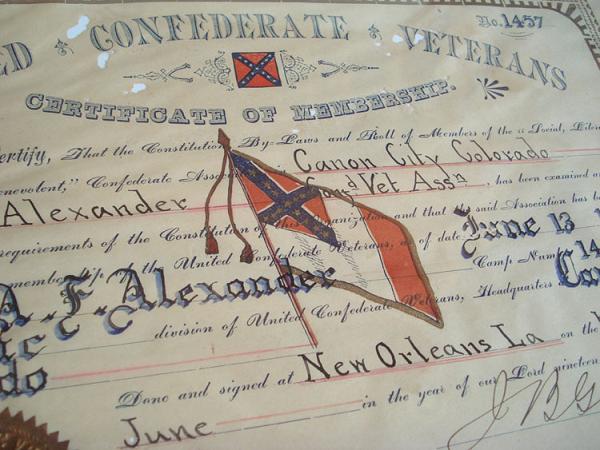 No. 1457
ED CONFEDERATE VETERANS
CERTIFICATE OF MEMBERSHIP.
Certify, That the Constitution By-Laws and Roll of Members of the "Social,
Canon City Colorado
enevolent," Confederate Vet Assn, has been examined
Alexander
requirements of the Constitution of this Organization and that the said Association has
membership of the United Confederate Veterans, as of date June 13
A. F. Alexander Camp
division of United Confederate Veterans, Headquarters
do
Done and signed at New Orleans La on the
June in the year of our Lord nineteen
J B G